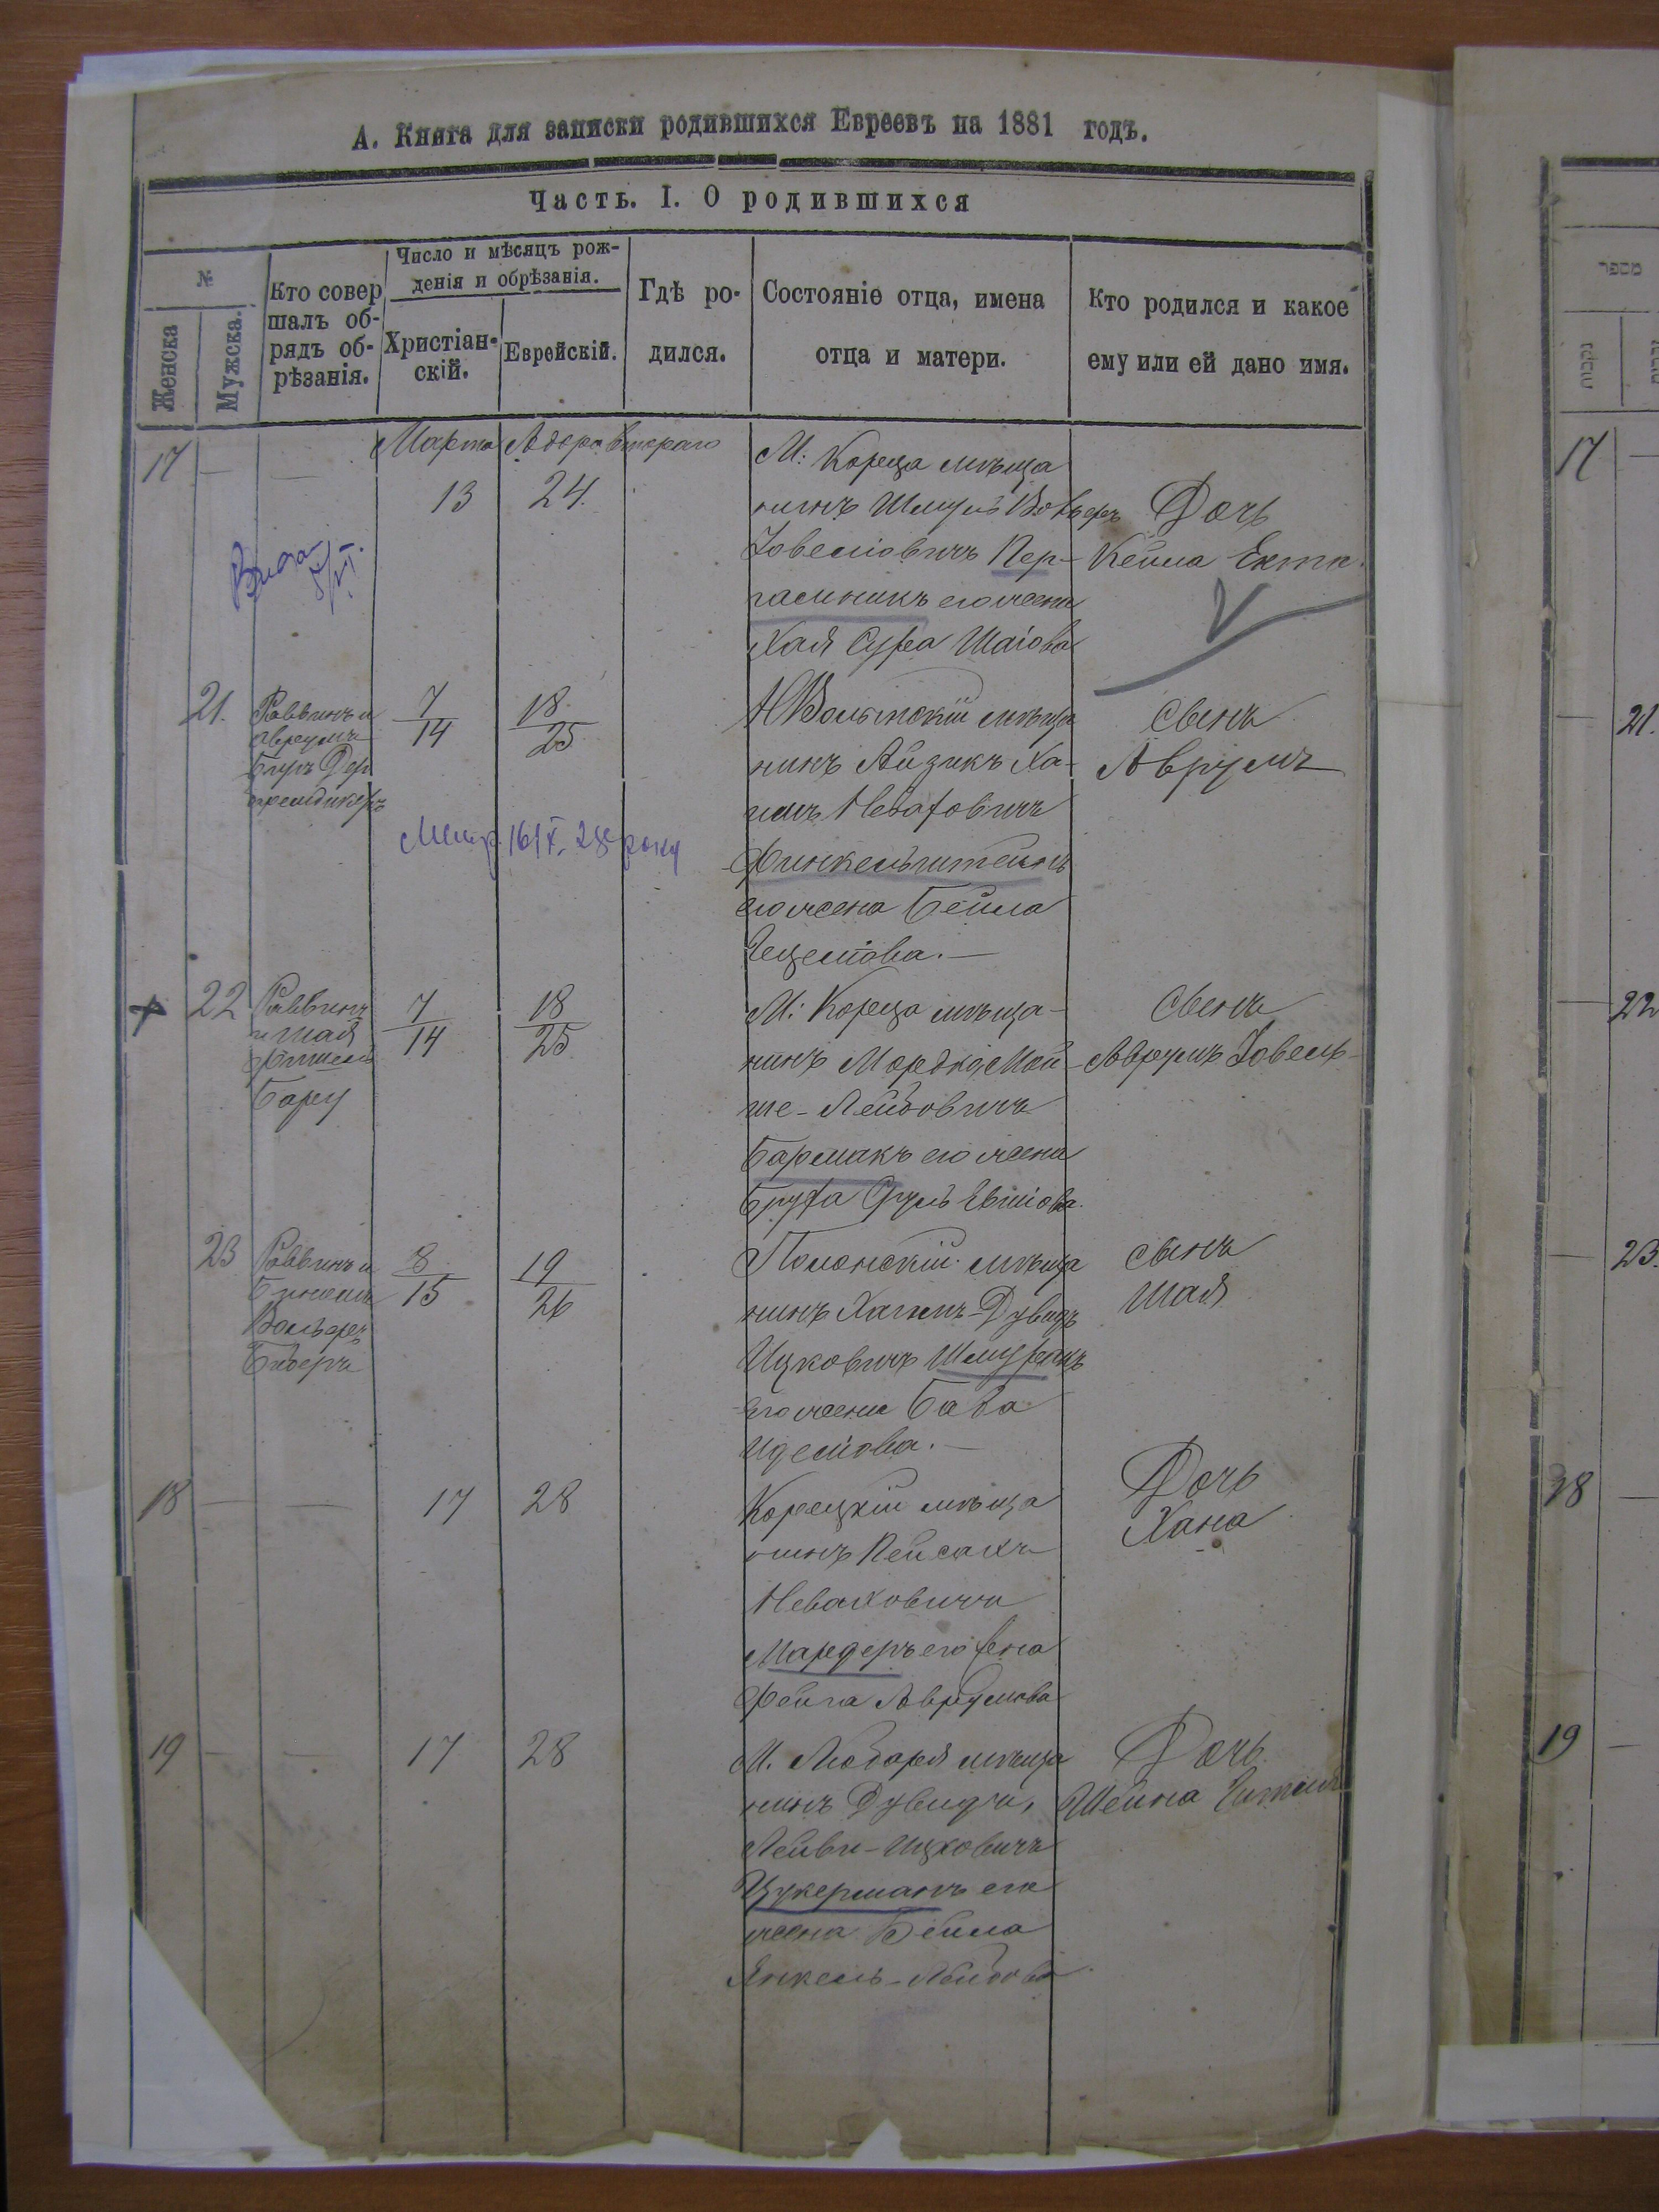 А. Книга для записки родившихся Евреевъ на 1881 годъ.
Часть. I. О родившихся
№
Женска
Мужска.
Кто совер
шалъ об-
рядъ об-
рѣзанія.
Число и мѣсяцъ рож-
денія и обрѣзанія.
Христіан-
скій.
Еврейскій.
Гдѣ ро-
дился.
Состояніе отца, имена
отца и матери.
Кто родился и какое
ему или ей дано имя.
Марта Адора втораго
17 — — 13 24.
М: Кореца мѣща
нинъ Шмуль Вольфъ
Іовеліовичъ Пер-
гаменикъ его жена
Хая Сура Шаіова
Дочь
Кейла Ента
21. Раввинъ и
Авру́мъ
7/14 18/25
НВолынскій мѣща
нинъ Айзикъ Ха-
имъ Невахович
Финкельштейнъ
его жена Бейла
Гецеліова. —
Сынъ
Аврумъ
22 Раввинъ
и Шая
Фишель
Барец
7/14 18/25
М: Кореца мѣща-
нинъ Мордко Мой-
ше-Лейбовичъ
Бармакъ его жена
Бруха
Сынъ
Аврумъ Іовель
23 Раввинъ и
Вольфъ
Бидеръ
8/15 19/26
Полонскій мѣща
нинъ Хаимъ-Дувидъ
Ицковичъ Шмуракъ
его жена Баба
Иделіова. —
сынъ
Шая
18 — — 17 28
Корецкій мѣща
нинъ Пейсахъ
Неваховичъ
Мардеръ его жена
Фейга Аврумова
Дочь
Хана
19 — — 17 28
М. Любаря мѣща
нинъ Дувидъ,
Лейби-Ицковичъ
Цукерманъ его
жена Бейла
Янкель-Лейбова
Дочь
Шейна Гитля
מספר
נקבות
17 —
— 21.
— 22
— 23.
18 —
19 —